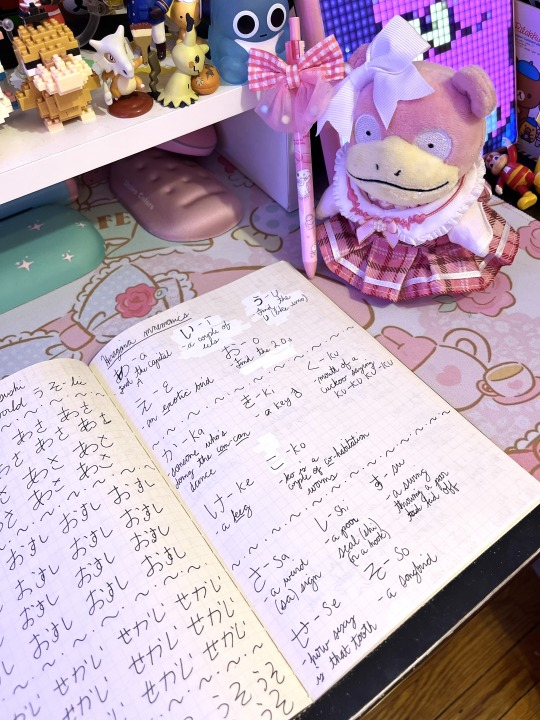 ushi うそ-li
orld
あさ あさ あさ
あさ あさ あさ
あさ あさ あさ
おすし おすし おすし
おすし おすし おすし
おすし おすし おすし
おすし おすし おすし
せかい せかい せかい
せかい せかい せかい
せかい せかい せかい
mnemonics
あ-a
find the capital
A
い-i
-a couple of
う-u
find the
え-E
an exotic bird
お-o
find the 2 o's
か-ka
someone who's
doing the can-can
dance
き-ki
a key
く-ku
-mouth of a
cuckoo saying
KU-KU KU-KU
け-ke
a keg
こ-ko
-ko is a
couple of co-habitation
worms
さ-sa
-a weird
(sa) sign
し-shi
-a poor
seal (shi)
on a hook
す-su
-a swing
throwing a poor
kid off
せ-se
-how sexy
is that tooth
そ-so
-a songbird